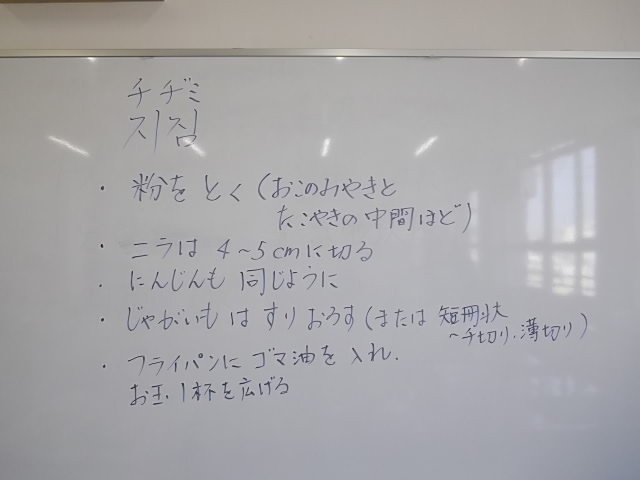 チヂミ
지짐
・粉をとく(おこのみやきと
たこやきの中間ほど)
・ニラは 4~5cmに切る
・にんじんも 同じように
・じゃがいもは すりおろす(または 短冊状
~千切り、薄切り)
・フライパンに ゴマ油を入れ、
お玉1杯を広げる